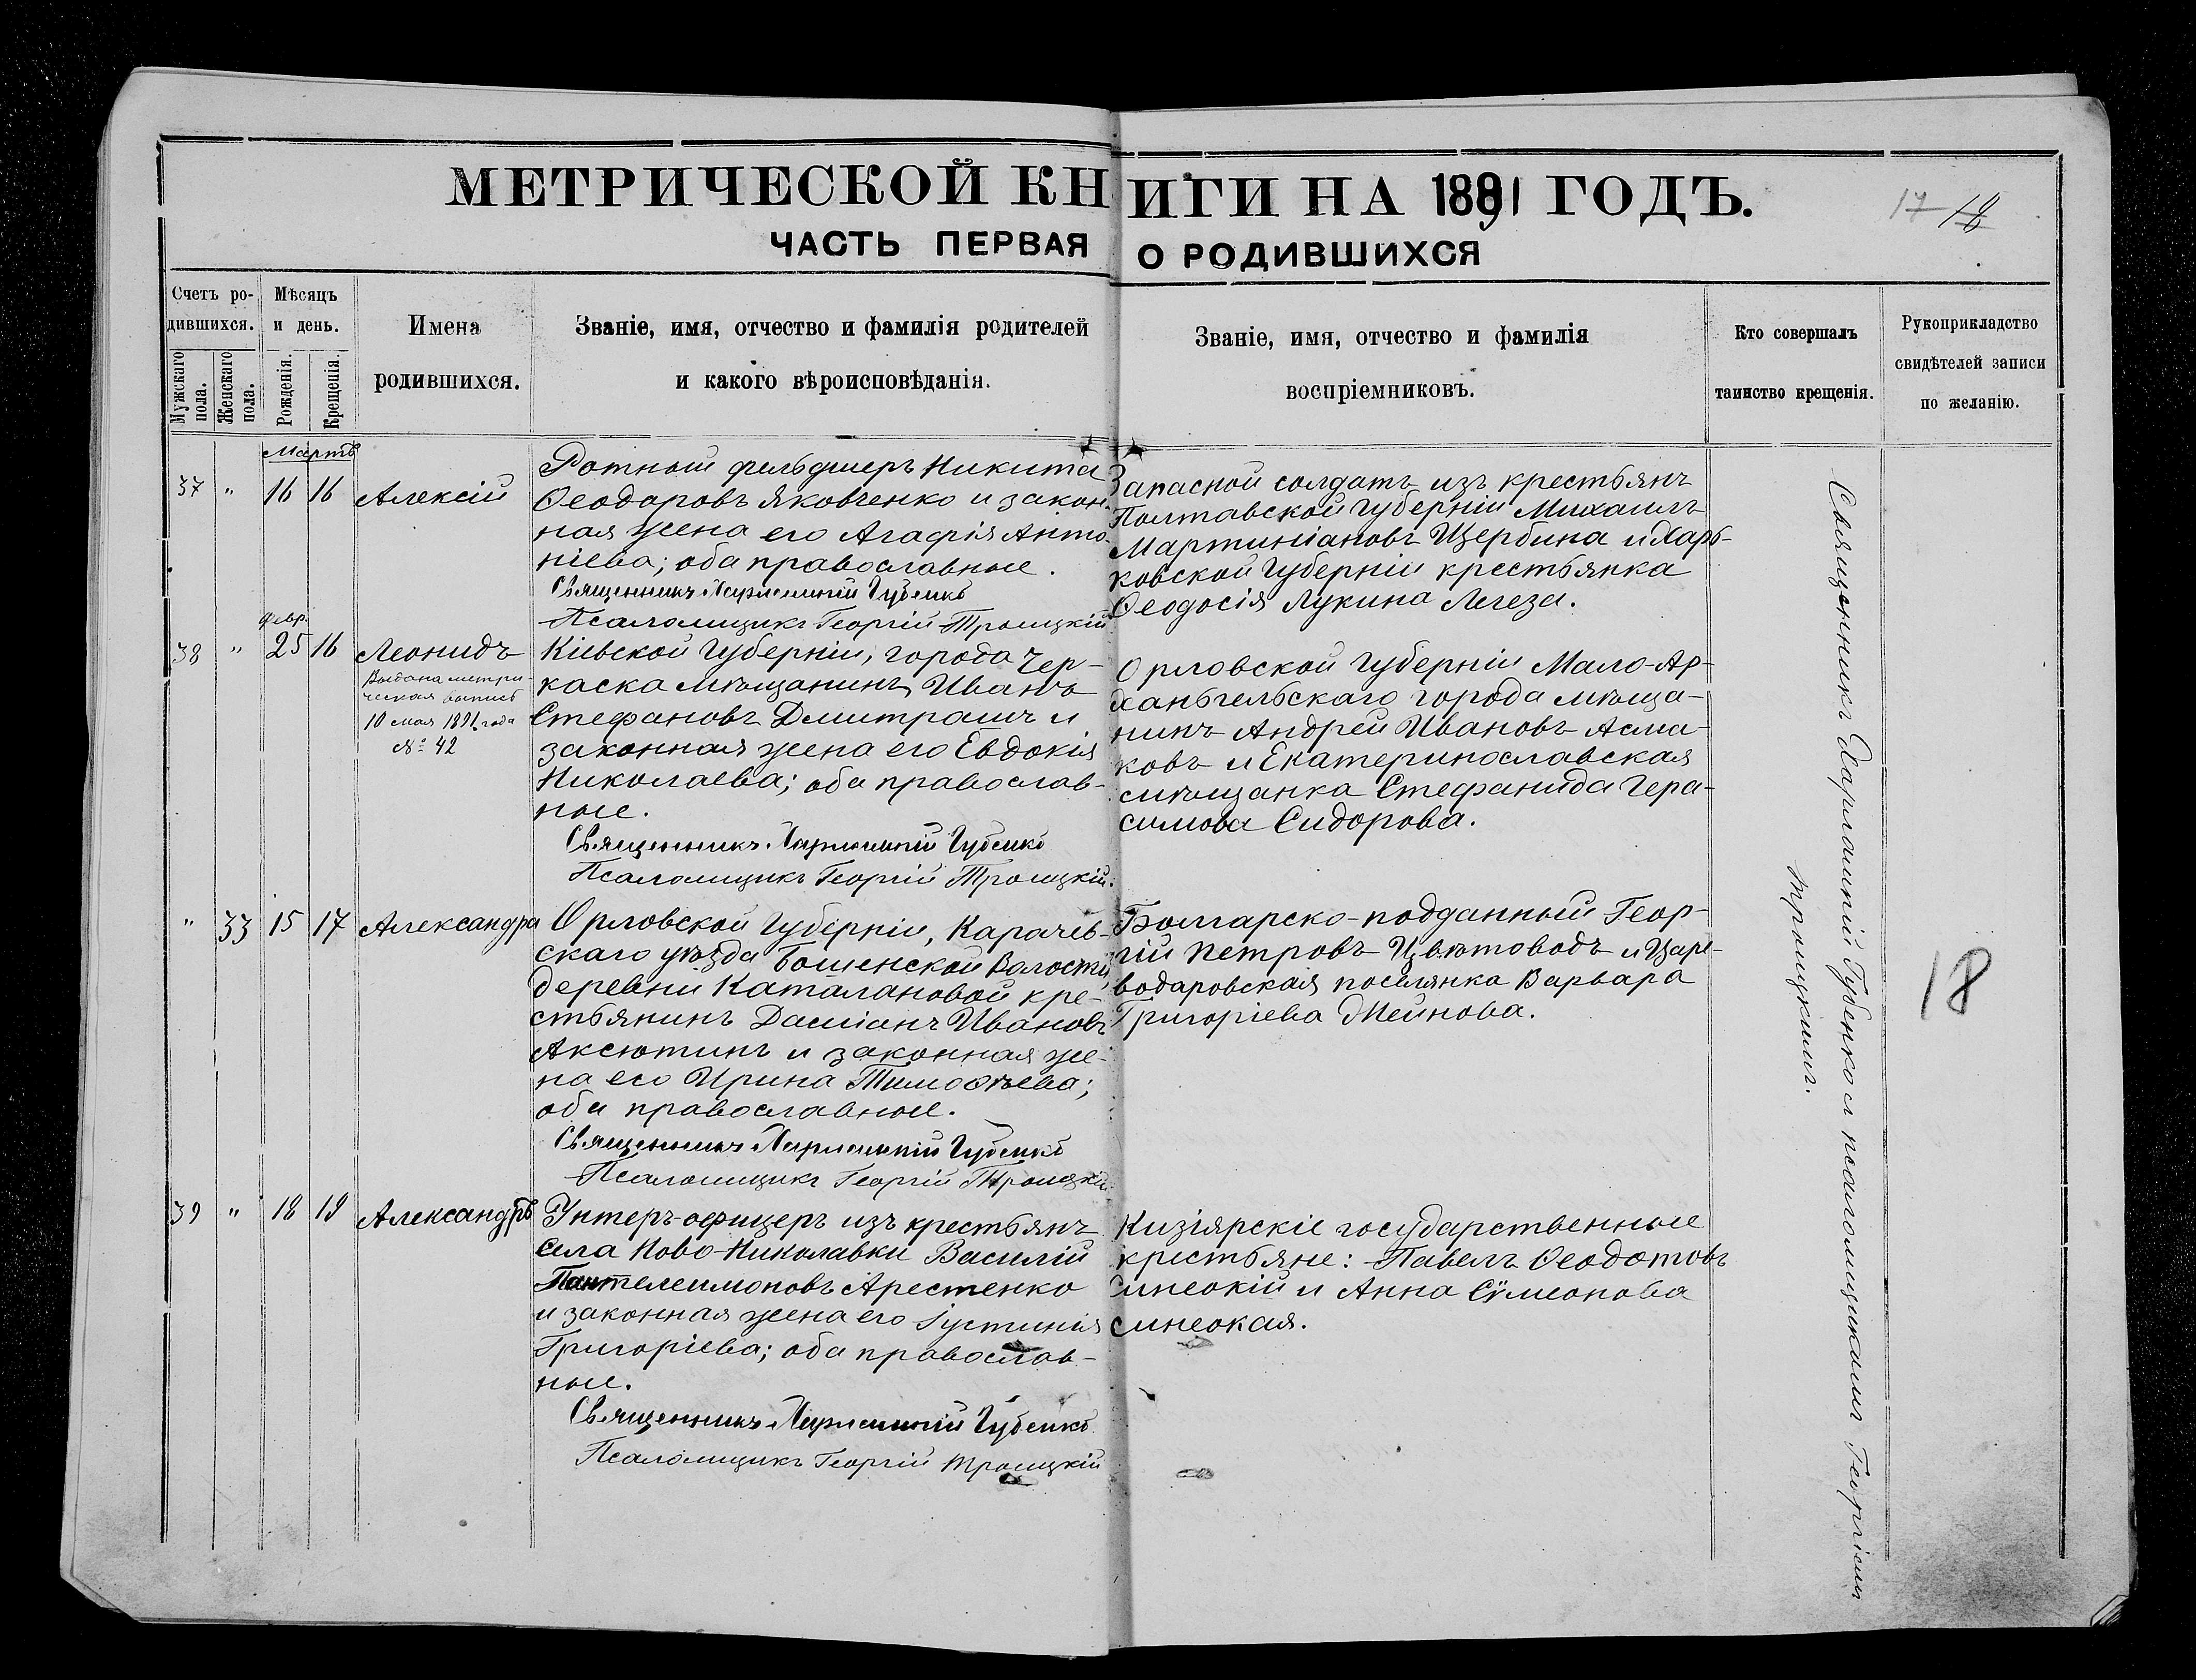 МЕТРИЧЕСКОЙ КНИГИ НА 1891 ГОДЪ.
ЧАСТЬ ПЕРВАЯ О РОДИВШИХСЯ
17 18
Счетъ ро-
дившихся.
Мужскаго пола.
Женскаго пола.
Мѣсяцъ
и день.
Рожденія.
Крещенія.
Имена
родившихся.
Званіе, имя, отчество и фамилія родителей
и какого вѣроисповѣданія.
Званіе, имя, отчество и фамилія
воспріемниковъ.
Кто совершалъ
таинство крещенія.
Рукоприкладство
свидѣтелей записи
по желанію.
Мартъ
37 " 16 16 Алексій
Ротный фельдшеръ Никита
Ѳеодоровъ Яковченко и закон-
ная жена его Агафія Анто-
ніева; оба православные.
Священникъ Харлампій Губенко
Псаломщикъ Георгій Троицкій
Запасной солдатъ изъ крестьянъ
Полтавской губерніи Михаилъ
Мартиніановъ Щербина и Харь-
ковской губерніи крестьянка
Ѳеодосія Лукина Легеза.
Февр.
38 " 25 16 Леонидъ
Выдана метри-
ческая выпись
10 мая 1891 года
№ 42
Кіевской губерніи, города Чер-
каска мѣщанинъ Иванъ
Стефановъ Дмитрашъ и
законная жена его Евдокія
Николаева; оба православ-
ные.
Священникъ Харлампій Губенко
Псаломщикъ Георгій Троицкій.
Орловской губерніи Мало-Ар-
хангельскаго города мѣща-
нинъ Андрей Ивановъ Асма-
ковъ и Екатеринославская
мѣщанка Стефанида Гера-
симова Сидорова.
" 33 15 17 Александра
Орловской губерніи, Карачев-
скаго уѣзда Бошенской волости
деревни Каталановой кре-
стьянинъ Даміанъ Ивановъ
Аксютинъ и законная же-
на его Ирина Тимоѳѣева;
оба православные.
Священникъ Харлампій Губенко
Псаломщикъ Георгій Троицкій
Болгарско-подданный Геор-
гій Петровъ Цвѣтоводъ и Царе-
водаровская поселянка Варвара
Григоріева Мейнова.
39 " 18 19 Александръ
Унтеръ-офицеръ изъ крестьянъ
села Ново-Николавки Василій
Пантелеимоновъ Арестенко
и законная жена его Іустинія
Григоріева; оба православ-
ные.
Священникъ Харлампій Губенко
Псаломщикъ Георгій Троицкій
Кизіярскіе государственные
крестьяне: Павелъ Ѳеодотовъ
Синеокій и Анна Сѵмеонова
Синеокая.
Священникъ Харлампій Губенко и псаломщикомъ Георгіемъ
Троицкимъ.
18